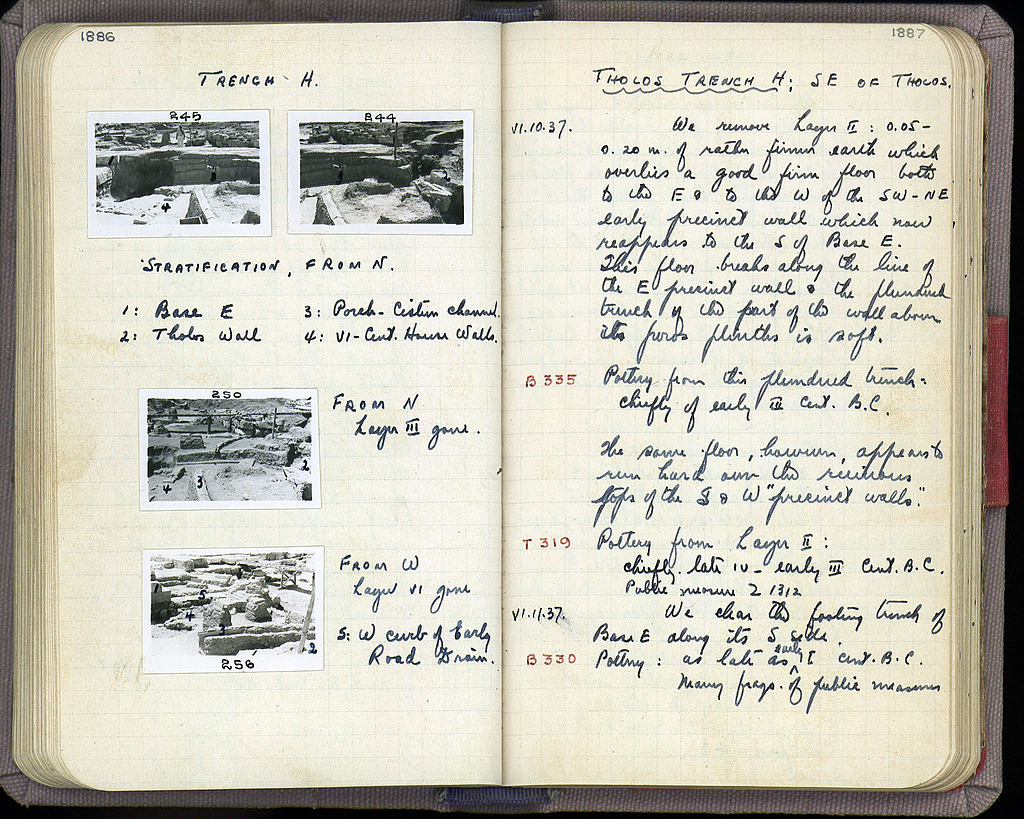 1886
TRENCH H.
245
244
4
STRATIFICATION, FROM N.
1: Base E
2: Tholos Wall
3: Porch-Cistern channel.
4: VI-Cent. House Walls.
250
2
4
3
FROM N
Layer III gone.
1
5
4
3
2
256
FROM W
Layer VI gone
5: W curb of Early
Road Drain.
1887
THOLOS TRENCH H; SE OF THOLOS.
VI.10.37.
We remove Layer II: 0.05-
0.20 m. of rather firmer earth which
overlies a good firm floor both
to the E & to the W of the SW-NE
early precinct wall which now
reappears to the S of Base E.
This floor breaks along the line of
the E precinct wall & the plundered
trench of the part of the wall above
its poros plinths is soft.
B 335
Pottery from this plundered trench:
chiefly of early III Cent. B.C.
The same floor, however, appears to
run hard over the ruinous
tops of the S & W "precinct walls."
T 319
Pottery from Layer II:
chiefly late IV - early III Cent. B.C.
Public measure P 1312
VI.11.37.
We clear the footing trench of
Base E along its S side.
B 330
Pottery: as late as early I cent. B.C.
Many frags. of public measures